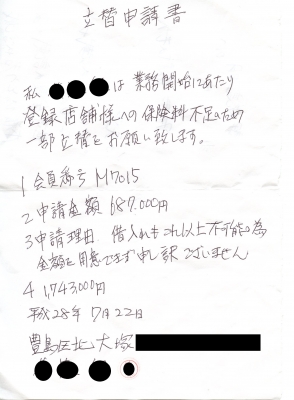 立替申請書
私 は業務開始にあたり
登録店舗様への保険料不足のため
一部立替をお願い致します。
1 会員番号 M7015
2 申請金額 687.000円
3 申請理由 借入れもこれ以上不可能の為
金額を用意できず申し訳ございません
4 1,743,000円
平成28年7月22日
豊島区北大塚